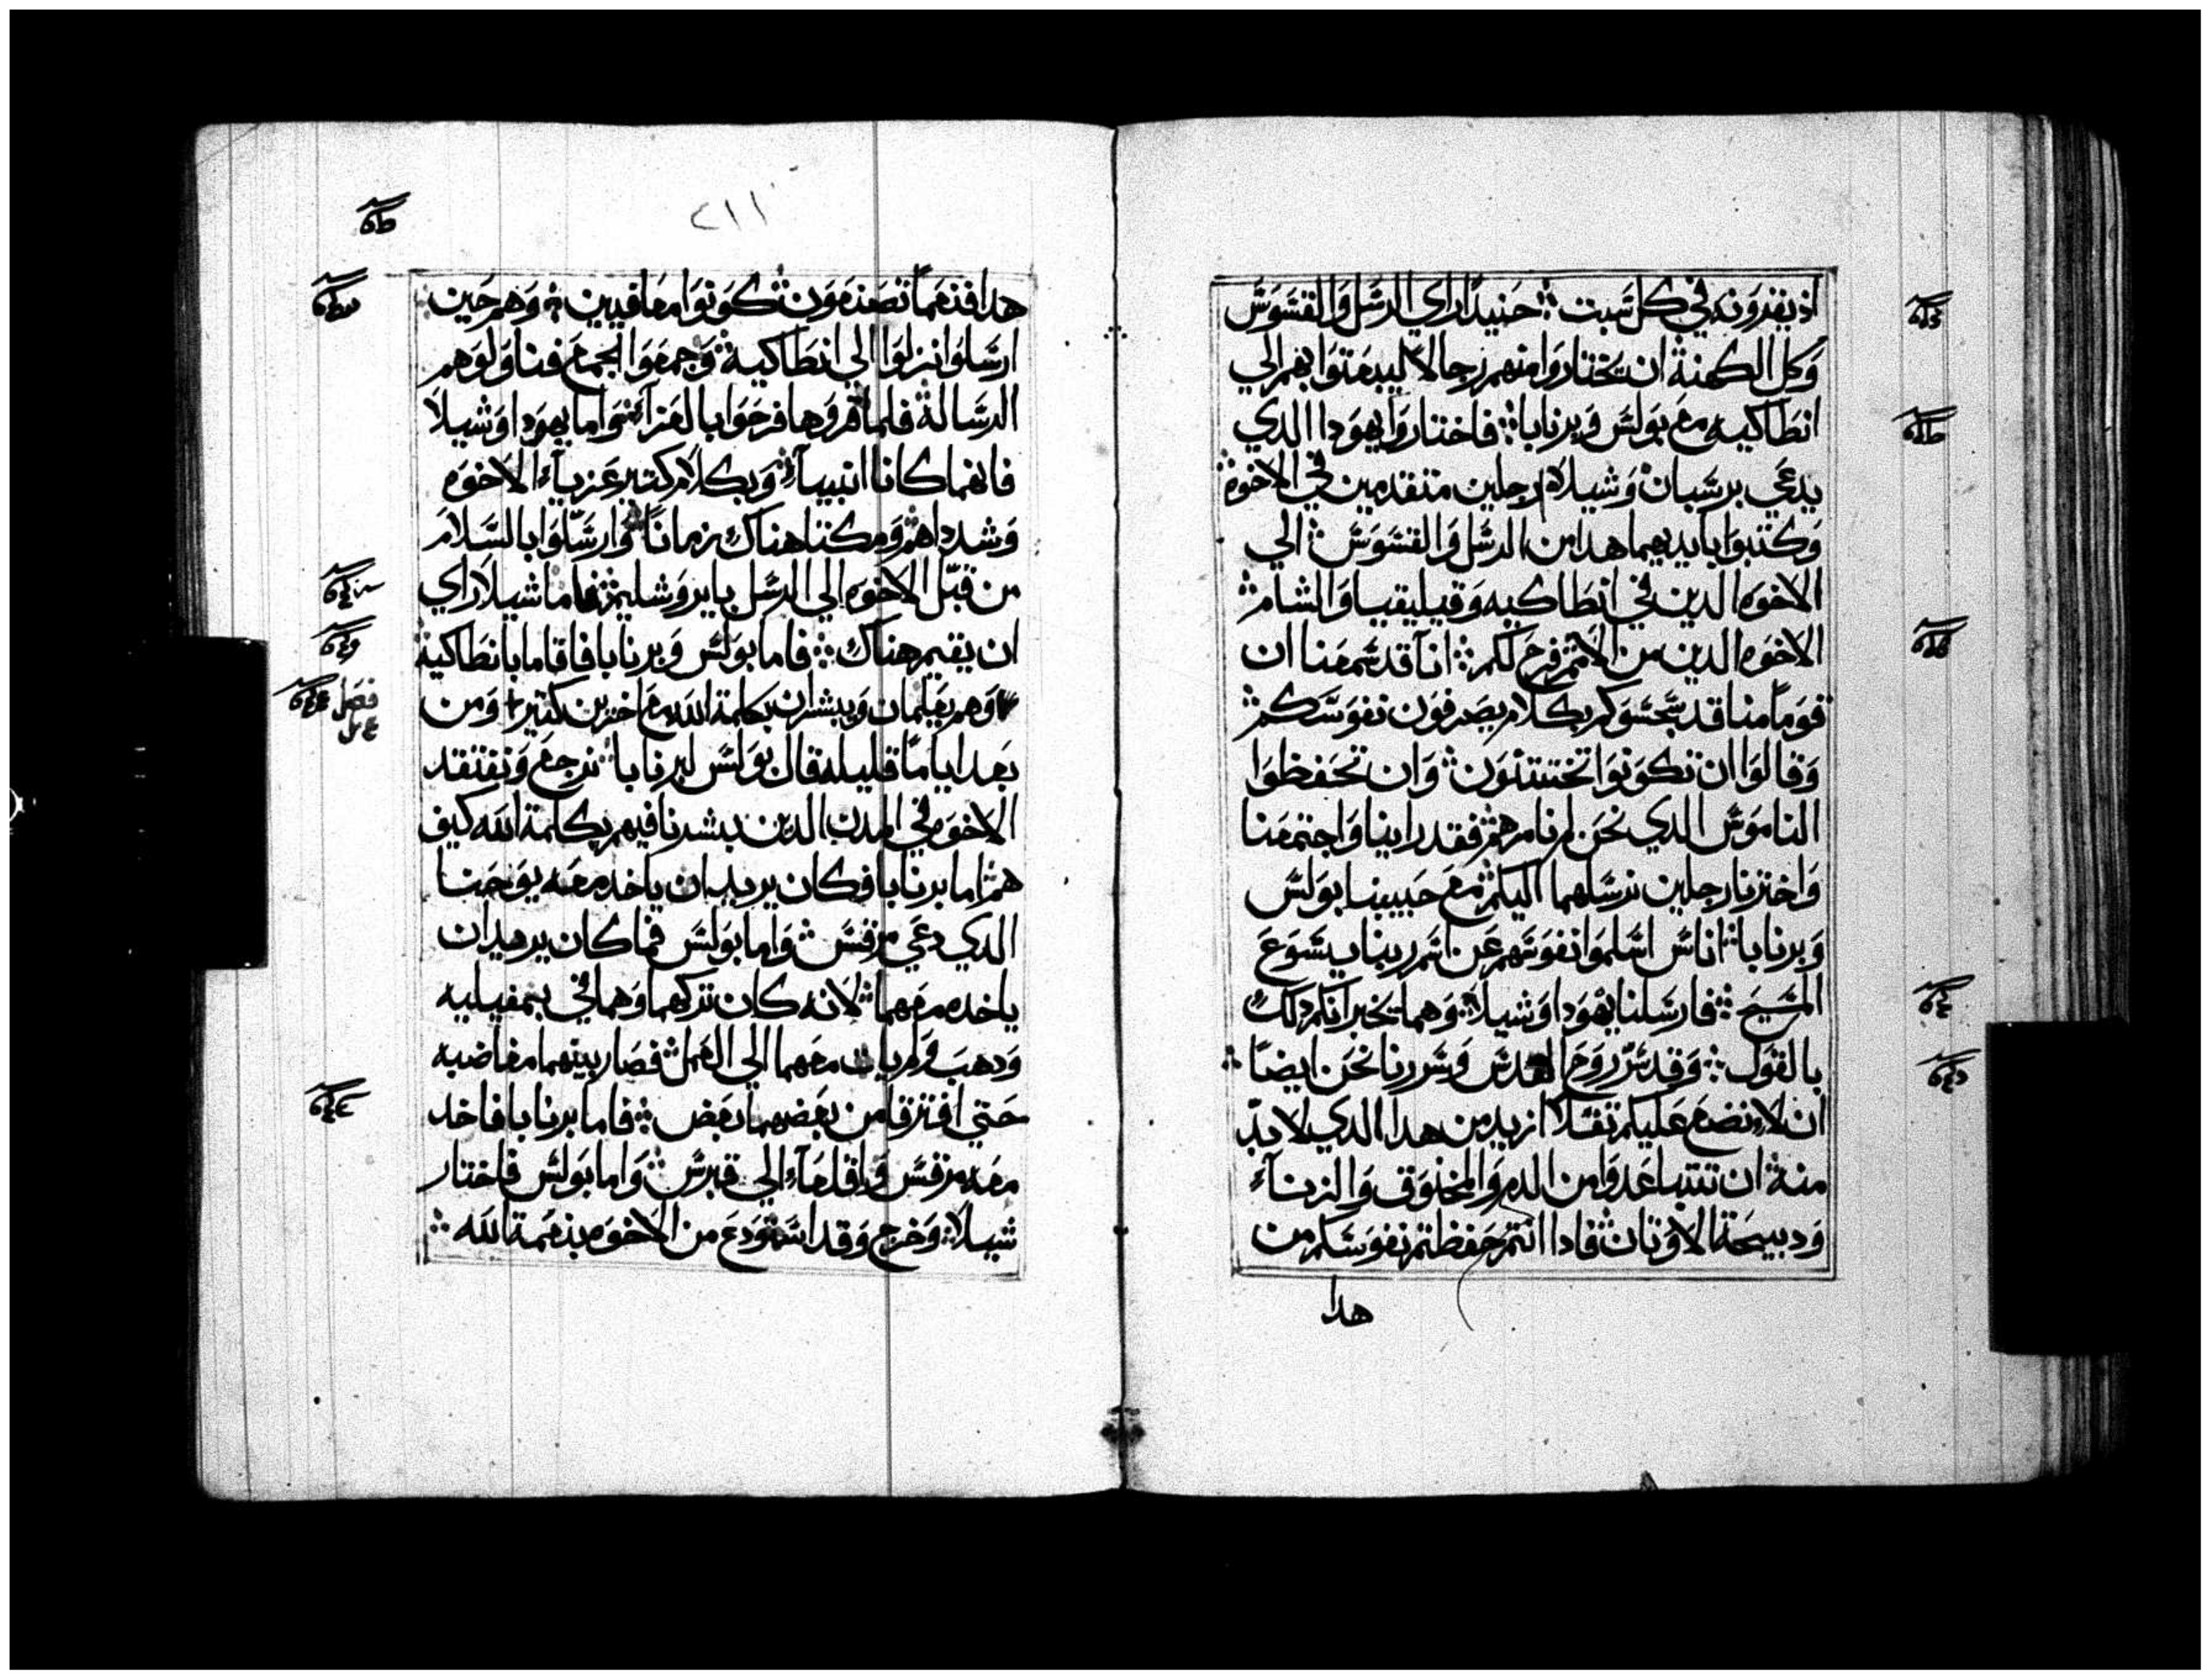 اذ يقرونه في كل سبت حنيدا راي الرسل والقسوس
وكل الكهنة ان يختاروا منهم رجالا ليبعتوا بهم الي
انطاكيه مع بولس وبرنابا فاختاروا يهودا الدي
يدعي برسبان وشيلا رجلين متقدمين في الاخوة
وكتبوا بايديهما هدا من الرسل والقسوس الي
الاخوه الدين في انطاكيه وقيليقيا والشام
الاخوه الدين من الامم فرح لكم انا قد سمعنا ان
قوما منا قد سجسوكم بكلام يصرفون نفوسكم
وقالوا ان تكونوا تختتنون وان تحفظوا
الناموس الدي نحن لم نامرهم فقد راينا واجتمعنا
واخترنا رجلين نرسلهما اليكم مع حبيبنا بولس
وبرنابا اناس اسلموا نفوسهم عن اسم ربنا يسوع
المسيح فارسلنا يهودا وشيلا وهما يخبرانكم دلك
بالقول وقد سر روح القدس وسررنا نحن ايضا
ان لا نضع عليكم تقلا ازيد من هدا الدي لا بد
منه ان تتباعدوا من الدم والمخنوق والزناء
ودبيحة الاوتان فادا انتم حفظتم نفوسكم من
هدا
٢١١
هدا فنعما تصنعون كونوا معافيين وهم حين
ارسلوا نزلوا الي انطاكية وجمعوا الجمع فناولوهم
الرسالة فلما قروها فرحوا بالعزاء واما يهودا وشيلا
فانهما كانا انبياء وبكلام كتير عزياء الاخوه
وشدداهم ومكتا هناك زمانا وارسلوا بالسلام
من قبل الاخوه الي الرسل بايروشليم فاما شيلا راي
ان يقيم هناك فاما بولس وبرنابا فاقاما بانطاكية
وهم يعلمان ويبشران بكلمة الله مع اخرين كتير ومن
فصل
بعد اياما قليله قال بولس لبرنابا نرجع ونفتقد
الاخوه في المدن الدين بشرنا فيهم بكلمة الله كيف
هم اما برنابا فكان يريد ان ياخد معه يوحنا
الدي دعي مرقس واما بولس فما كان يريد ان
ياخده معهما لانه كان تركهما وهما في بمفيليه
ودهب ولم يات معهما الي العمل فصار بينهما مغاضبه
حتي افترقا من بعضهما بعض فاما برنابا فاخد
معه مرقس واقلعاء الي قبرس واما بولس فاختار
شيلا وخرج وقد استودع من الاخوه بنعمة الله